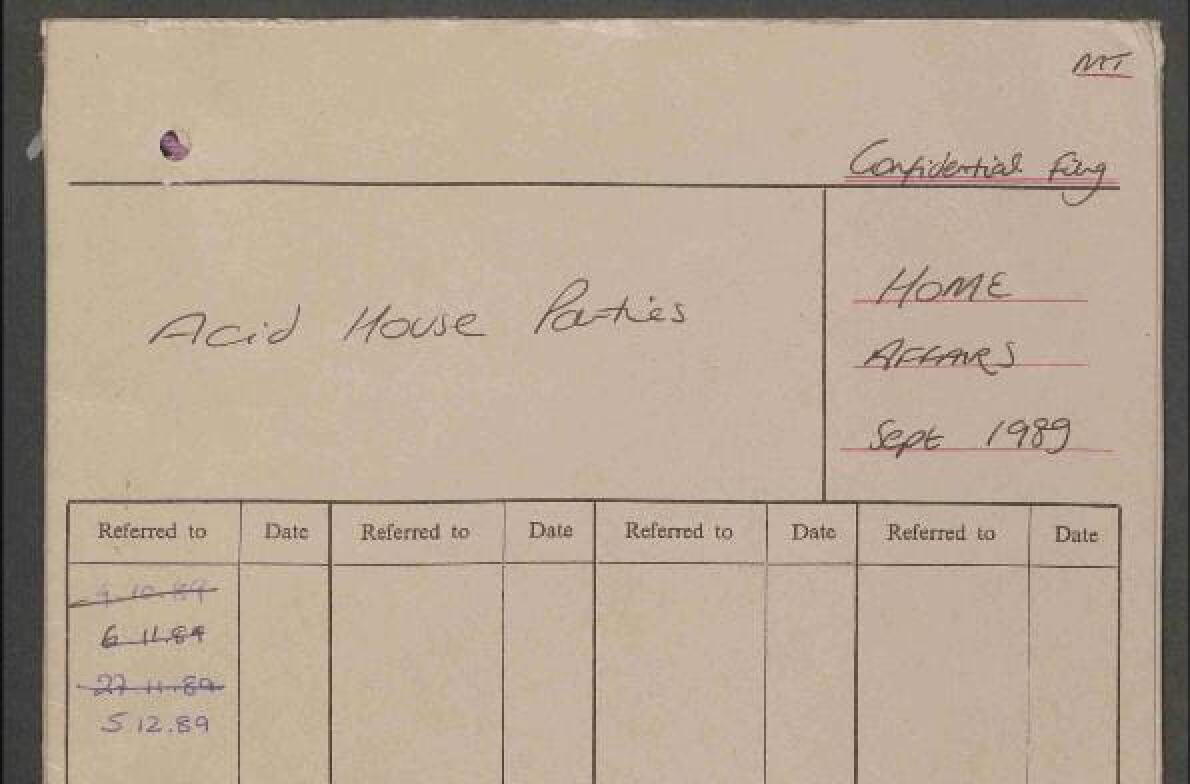 MT
Confidential Filing
Acid House Parties
HOME
AFFAIRS
Sept 1989
Referred to Date Referred to Date Referred to Date Referred to Date
10.89
6 11.89
27 11.89
5 12.89